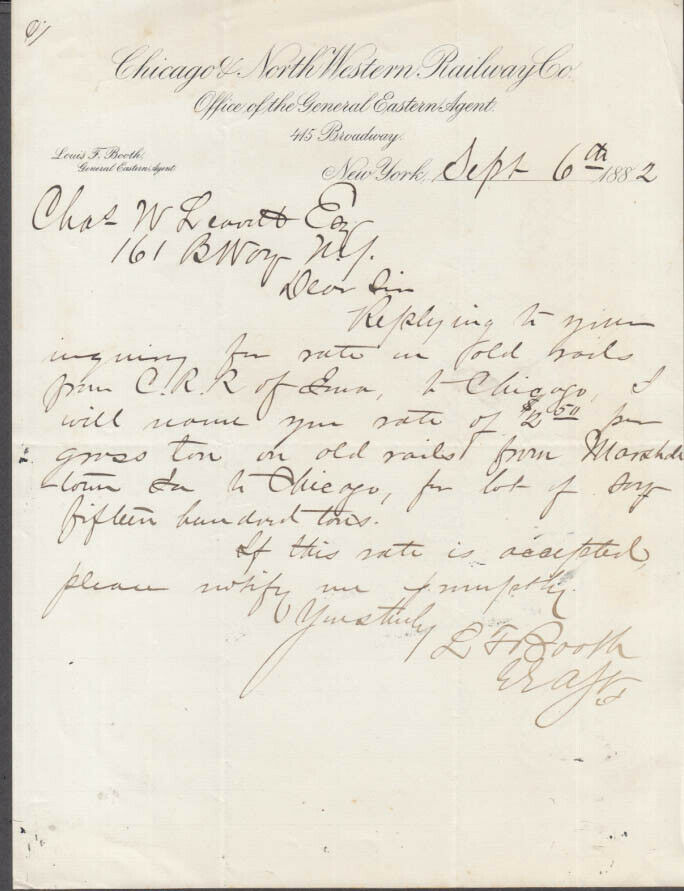 Chicago & North Western Railway Co.
Office of the General Eastern Agent.
415 Broadway.
Louis F. Booth,
General Eastern Agent.
New York, Sept 6th 1882
Chas W Leavitt Esq
161 BWay N.Y.
Dear Sir
Replying to your
inquiry for rate on old rails
from C.R.R of Iowa, to Chicago, I
will name you rate of $2.50 per
gross ton on old rails from Marshall
-town Ia to Chicago, for lot of say
fifteen hundred tons.
If this rate is accepted,
please notify me promptly.
Yours truly
L F Booth
G E Agt